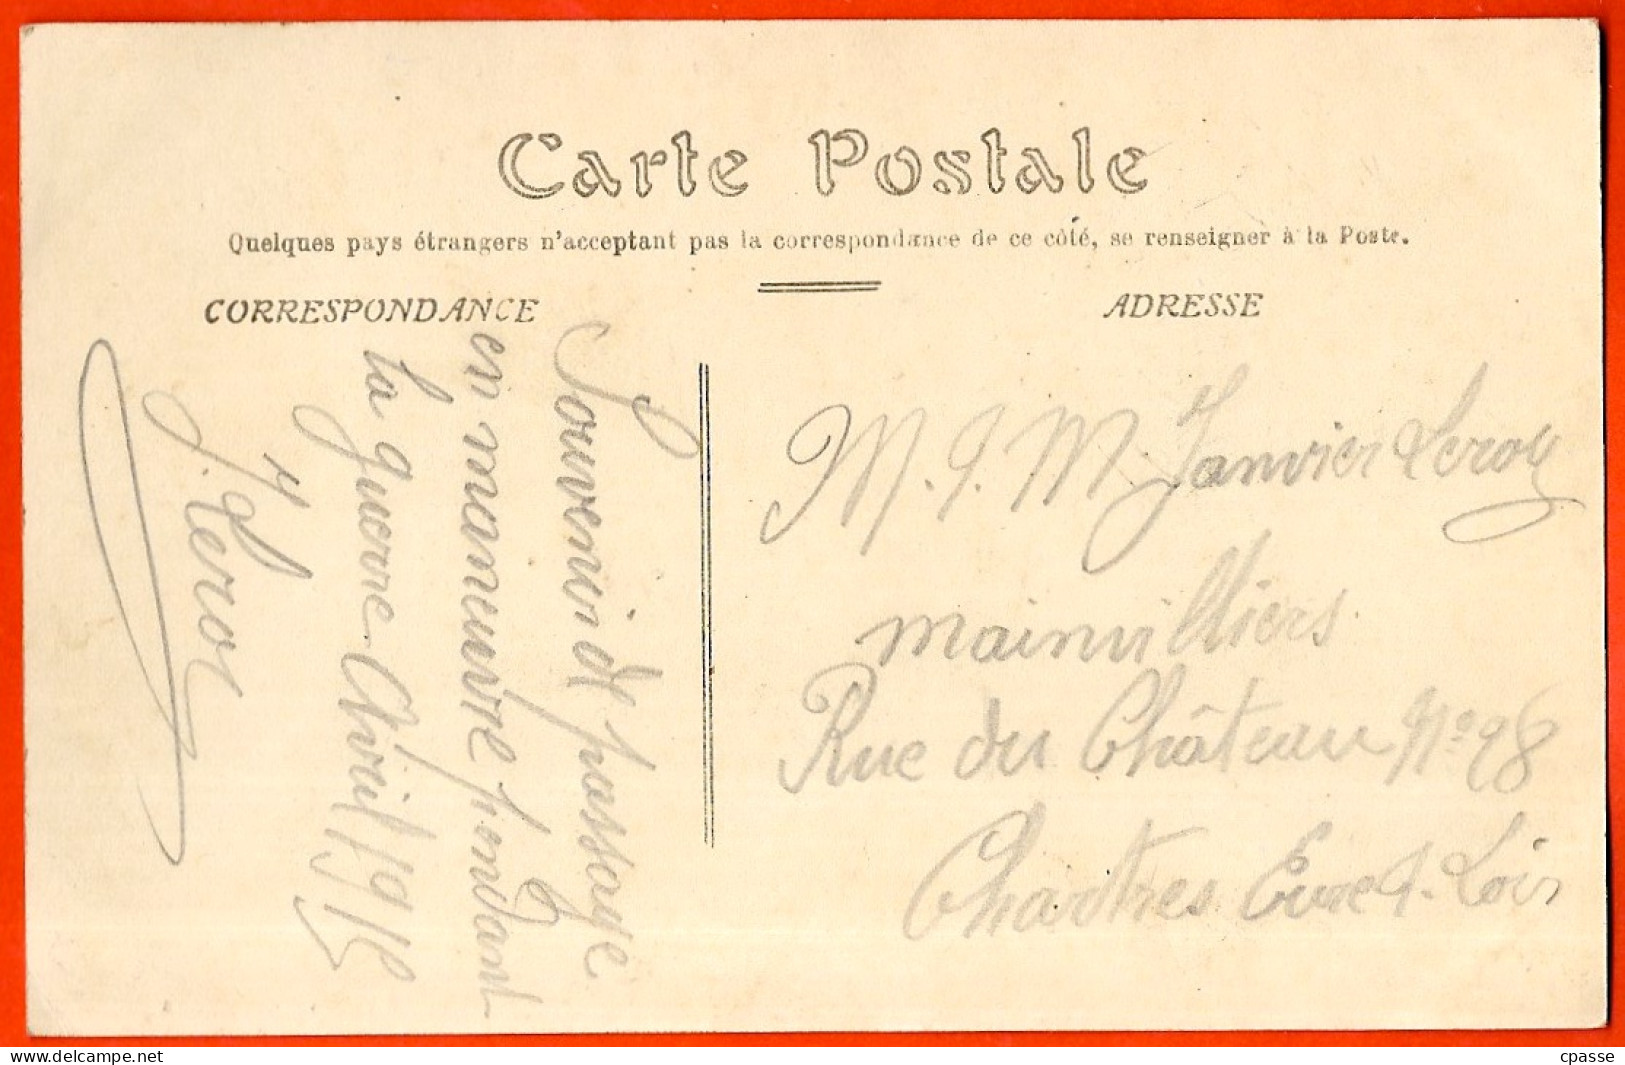 Carte Postale
Quelques pays étrangers n'acceptant pas la correspondance de ce côté, se renseigner à la Poste.
CORRESPONDANCE
Souvenir de passage
en maneuvre pendant
la guerre Avril 1915
J. Leroy
ADRESSE
M. J. M Janvier Leroy
mainvilliers
Rue du Château N° 98
Chartres Eure &. Loir
www.delcampe.net
cpasse